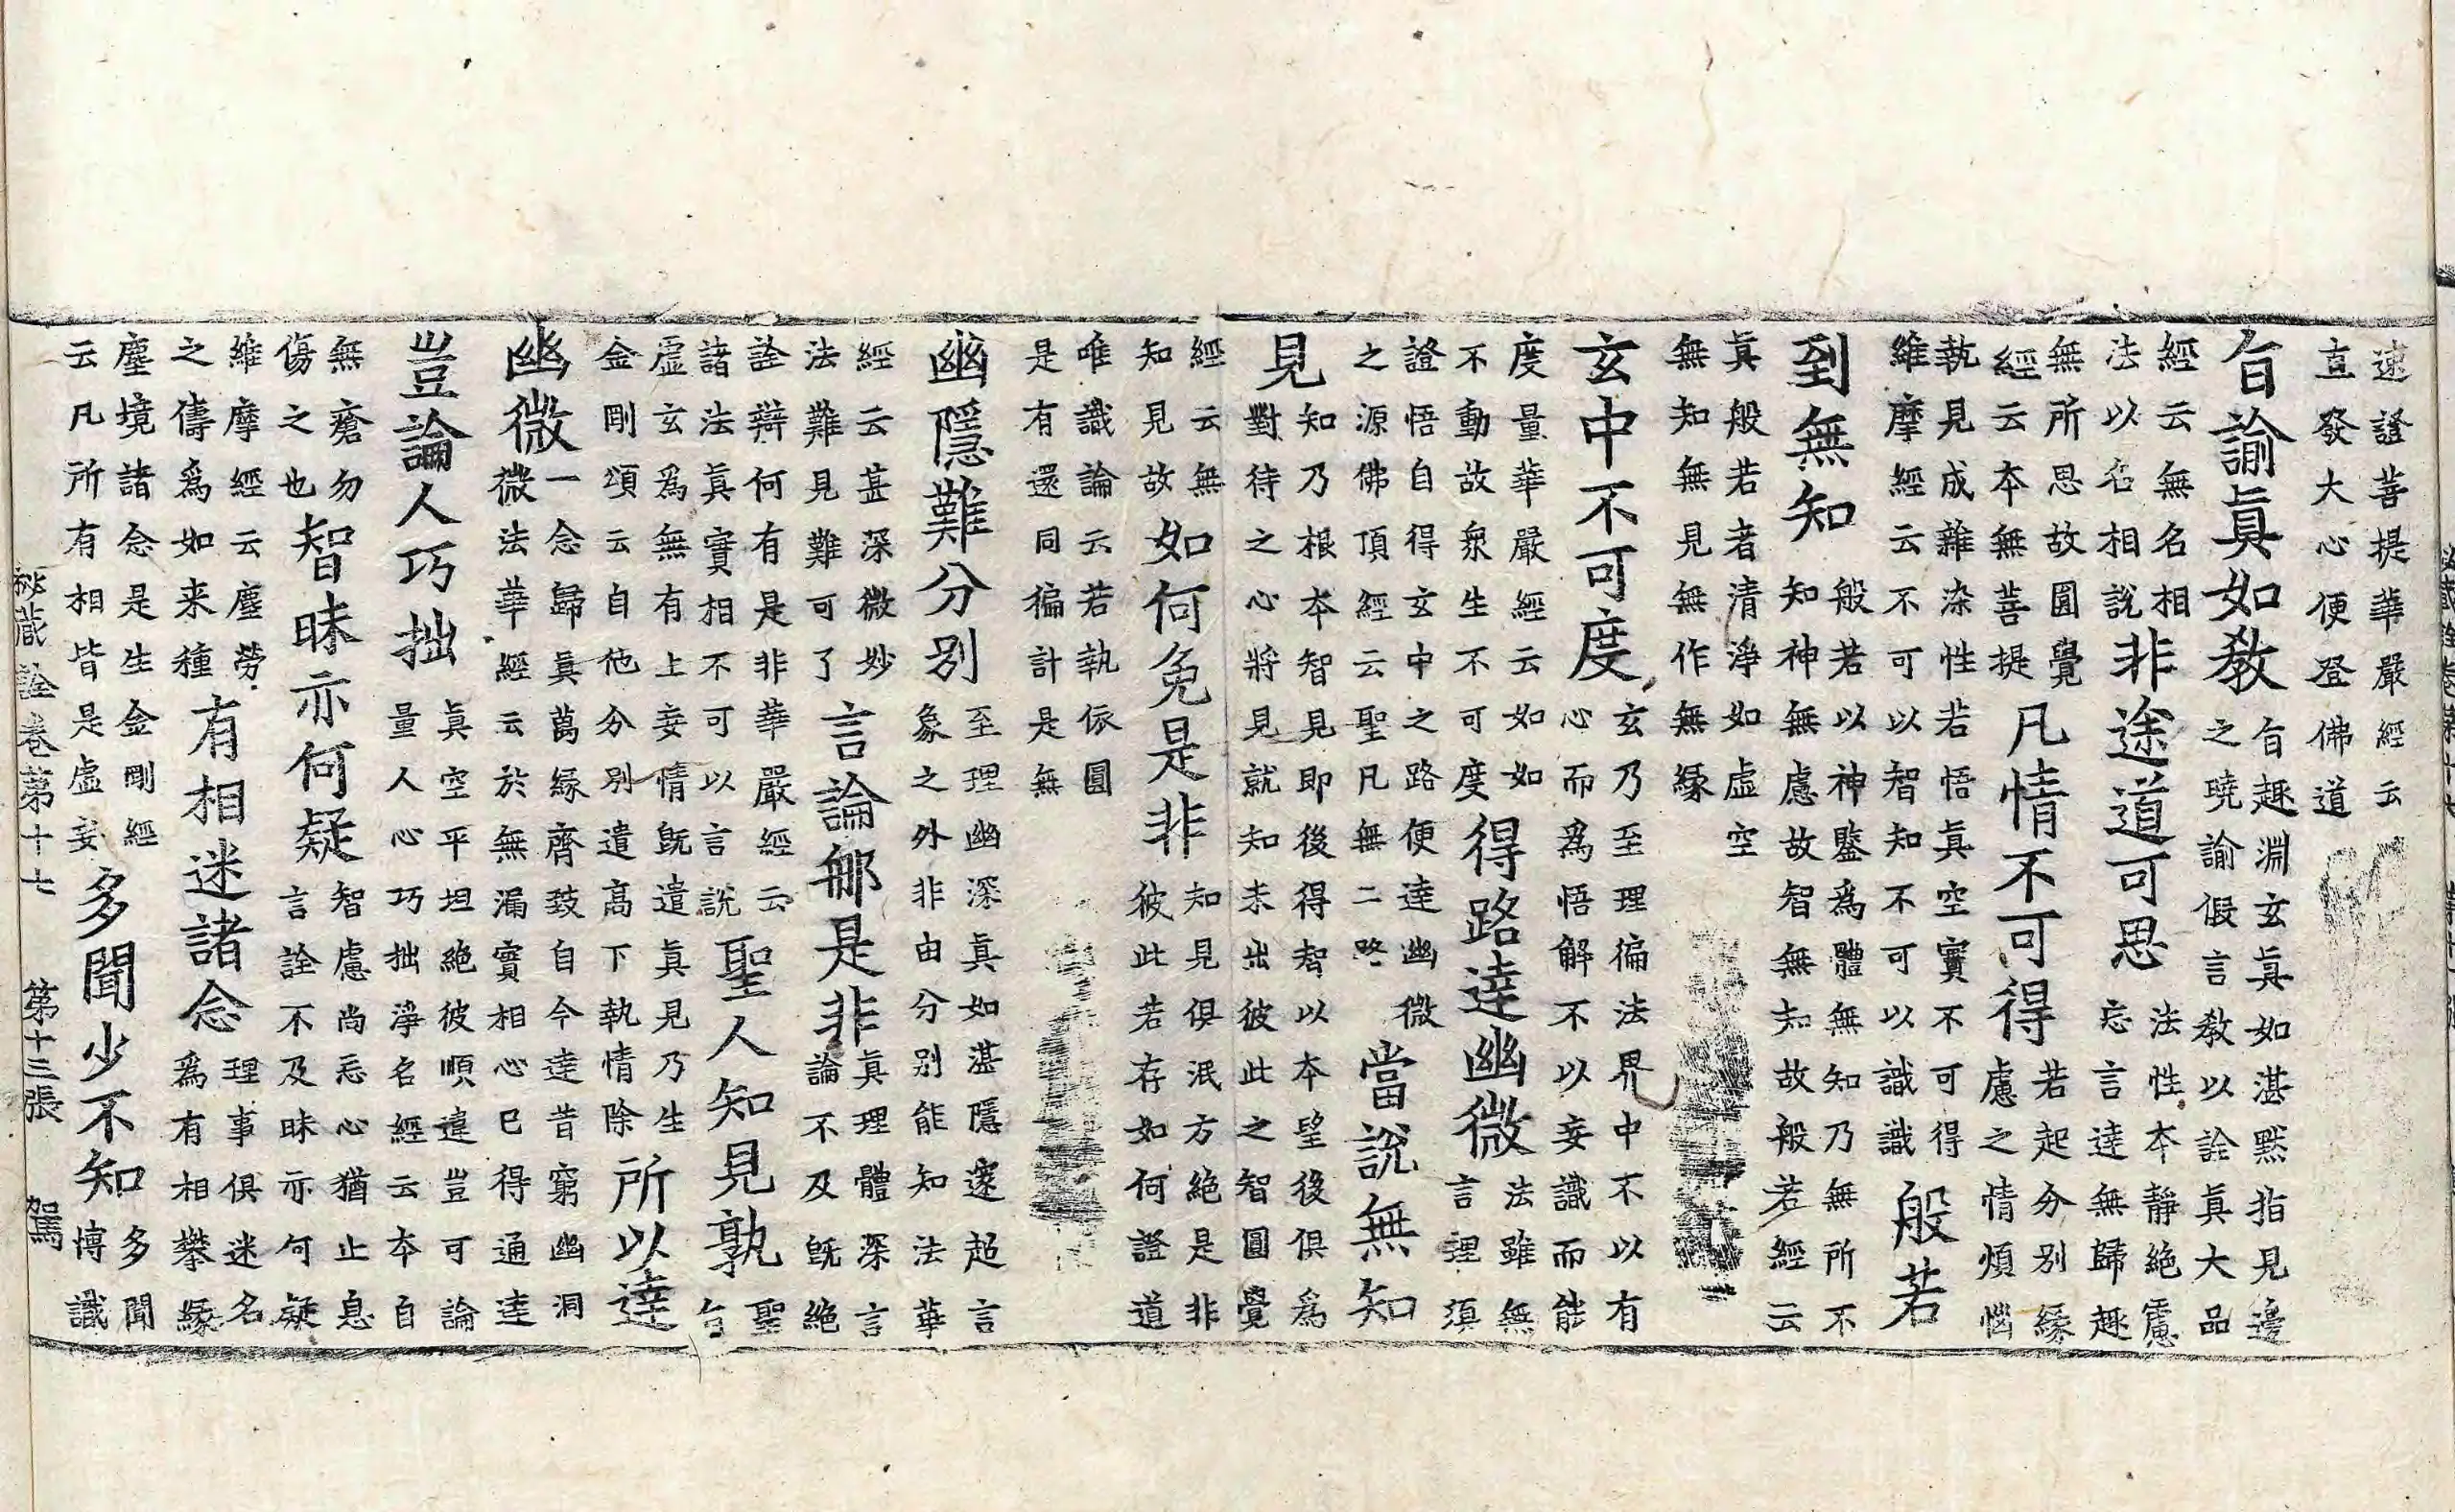 速證菩提華嚴經云
直發大心便登佛道
旨諭眞如教
旨趣淵玄眞如湛默指見邊
之曉諭假言教以詮眞大品
經云無名相
法以名相說
非途道可思
法性本靜絶慮
忘言達無歸趣
無所思故圓覺
經云本無菩提
凡情不可得
若起分別緣
慮之情煩惱
執見成雜染性若悟眞空實不可得
維摩經云不可以智知不可以識識
般若
到無知
般若以神鑒爲體無知乃無所不
知神無慮故智無知故般若經云
眞般若者清淨如虛空
無知無見無作無緣
玄中不可度
玄乃至理徧法界中不以有
心而爲悟解不以妄識而能
度量華嚴經云如如
不動故衆生不可度
得路達幽微
法雖無
言理須
證悟自得玄中之路便達幽微
之源佛頂經云聖凡無二路
當說無知
見
知乃根本智見即後得智以本望後俱爲
對待之心將見就知未出彼此之智圓覺
經云無
知見故
如何免是非
知見俱泯方絶是非
彼此若存如何證道
唯識論云若執依圓
是有還同徧計是無
幽隱難分別
至理幽深眞如湛隱邃超言
象之外非由分別能知法華
經云甚深微妙
法難見難可了
言論那是非
眞理體深言
論不及旣絶
詮辯何有是非華嚴經云
諸法眞實相不可以言說
聖人知見孰
聖
旨
虛玄爲無有上妄情旣遣眞見乃生
金剛頌云自他分別遣高下執情除
所以達
幽微
一念歸眞萬緣齊致自今達昔窮幽洞
微法華經云於無漏實相心已得通達
豈論人巧拙
眞空平坦絶彼順違豈可論
量人心巧拙淨名經云本自
無瘡勿
傷之也
智昧亦何疑
智慮尚忘心猶止息
言詮不及昧亦何疑
維摩經云塵勞
之儔爲如来種
有相迷諸念
理事俱迷名
爲有相攀緣
塵境諸念是生金剛經
云凡所有相皆是虛妄
多聞少不知
多聞
博識
秘藏詮卷第十七　第十三張　駕